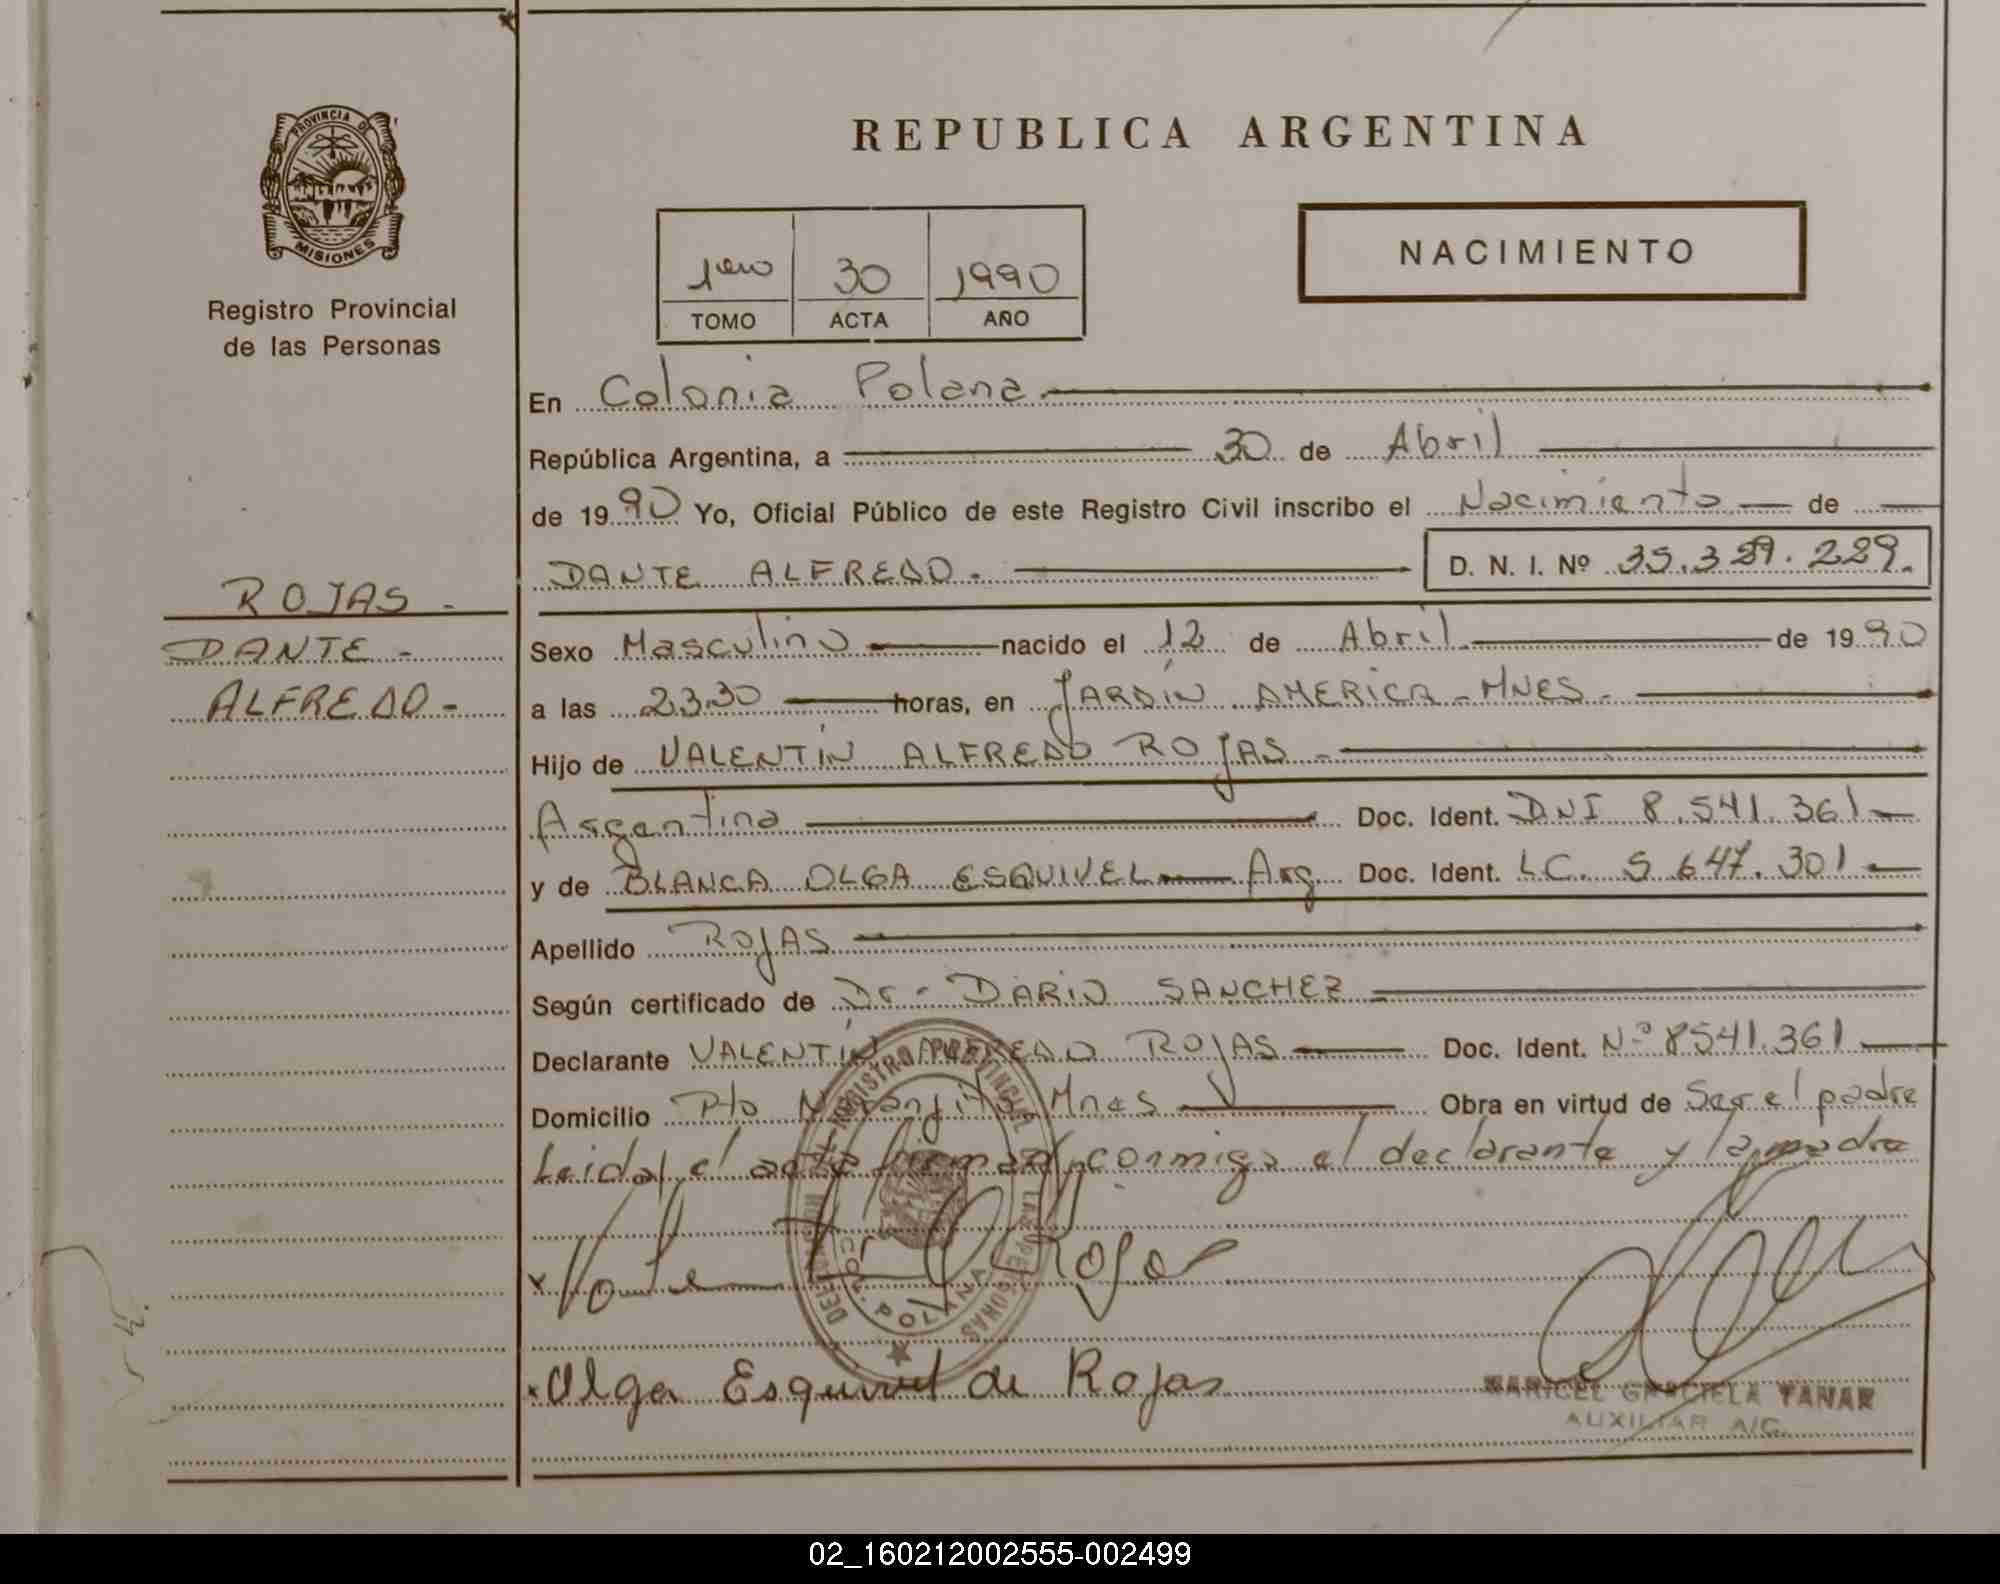 REPUBLICA ARGENTINA
PROVINCIA DE
MISIONES
Registro Provincial
de las Personas
1ero 30 1990
TOMO ACTA AÑO
NACIMIENTO
En Colonia Polana
República Argentina, a 30 de Abril
de 1990 Yo, Oficial Público de este Registro Civil inscribo el Nacimiento de
DANTE ALFREDO. D. N. I. Nº 35.329.229.
ROJAS -
DANTE -
ALFREDO -
Sexo Masculino nacido el 12 de Abril de 1990
a las 23.30 horas, en JARDIN AMERICA - MNES -
Hijo de VALENTIN ALFREDO ROJAS -
Argentina Doc. Ident. DNI 8.541.361
y de BLANCA OLGA ESQUIVEL Arg. Doc. Ident. LC. 5.647.301
Apellido ROJAS
Según certificado de Dr. DARIO SANCHEZ
Declarante VALENTIN ALFREDO ROJAS Doc. Ident. Nº 8541.361
Domicilio Pto Naranjito Mnes Obra en virtud de Ser el padre
Leida el acta firman conmigo el declarante y la madre
x Rojas
x Olga Esquivel de Rojas
REGISTRO PROVINCIAL DE LAS PERSONAS
COL. POLANA
MARICEL GRACIELA TANAR
AUXILIAR A/C.
02_160212002555-002499